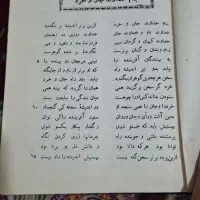 بنام خداوند جان و خرد
بنام خداوند جان و خرد کزین برتر اندیشه بر نگذرد
خداوند نام و خداوند جای خداوند روزی ده رهنمای
خداوند کیهان و گردان سپهر فروزنده ماه و ناهید و مهر
ز نام و نشان و گمان برترست نگارنده بر شده گوهرست
به بینندگان آفریننده را نبینی مرنجان دو بیننده را ۵
نیابد بدو نیز اندیشه راه که او برتر از نام و از جایگاه
سخن هرچه زین گوهران بگذرد نیابد بدو راه جان و خرد
خرد گر سخن برگزیند همی همان را گزیند که بیند همی
ستودن نداند کس او را چو هست میان بندگی را ببایدت بست
خرد را و جان را همی سنجد او در اندیشه سخته کی گنجد او ۱۰
بدین آلت رای و جان و روان ستود آفریننده را کی توان
بهستیش باید که خستو شوی ز گفتار بیکار یکسو شوی
پرستنده باشی و جوینده راه بفرمانها ژرف کردن نگاه
توانا بود هر که دانا بود ز دانش دل پیر برنا بود
ازین پرده برتر سخن گاه نیست بهستیش اندیشه را راه نیست ۱۵